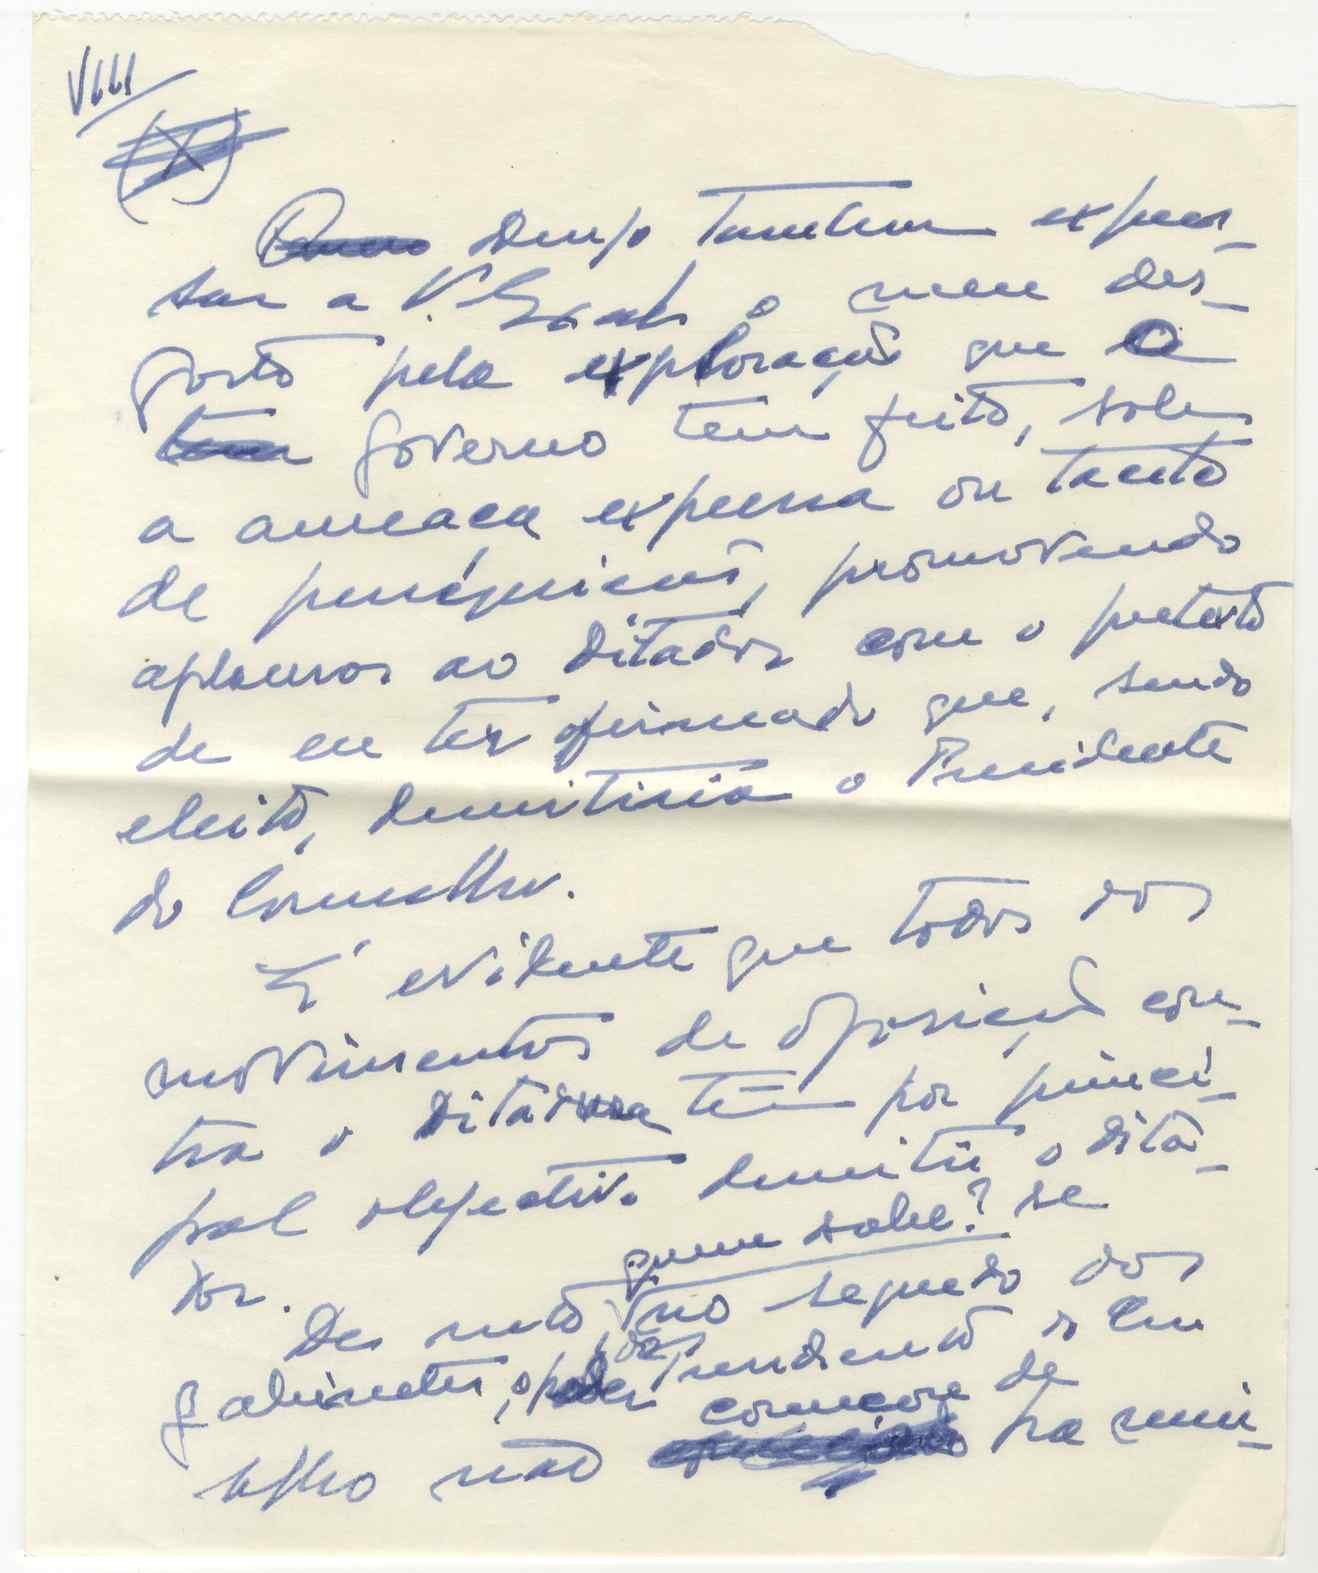 VIII
(X)
Quero Desejo também expres-
sar a V. Ex.ª o meu des-
gosto pela exploração que o
tem governo tem feito, sob
a ameaça expressa ou tácita
de perseguições, promovendo
aplausos ao Ditador com o pretexto
de eu ter afirmado que, sendo
eleito, demitiria o Presidente
do Conselho.
É evidente que todos os
movimentos de oposição con-
tra a Ditadura têm por princi-
pal objectivo demitir o Dita-
dor.
quem sabe? se
De resto, no segredo dos
gabinetes, o poder
não começa de